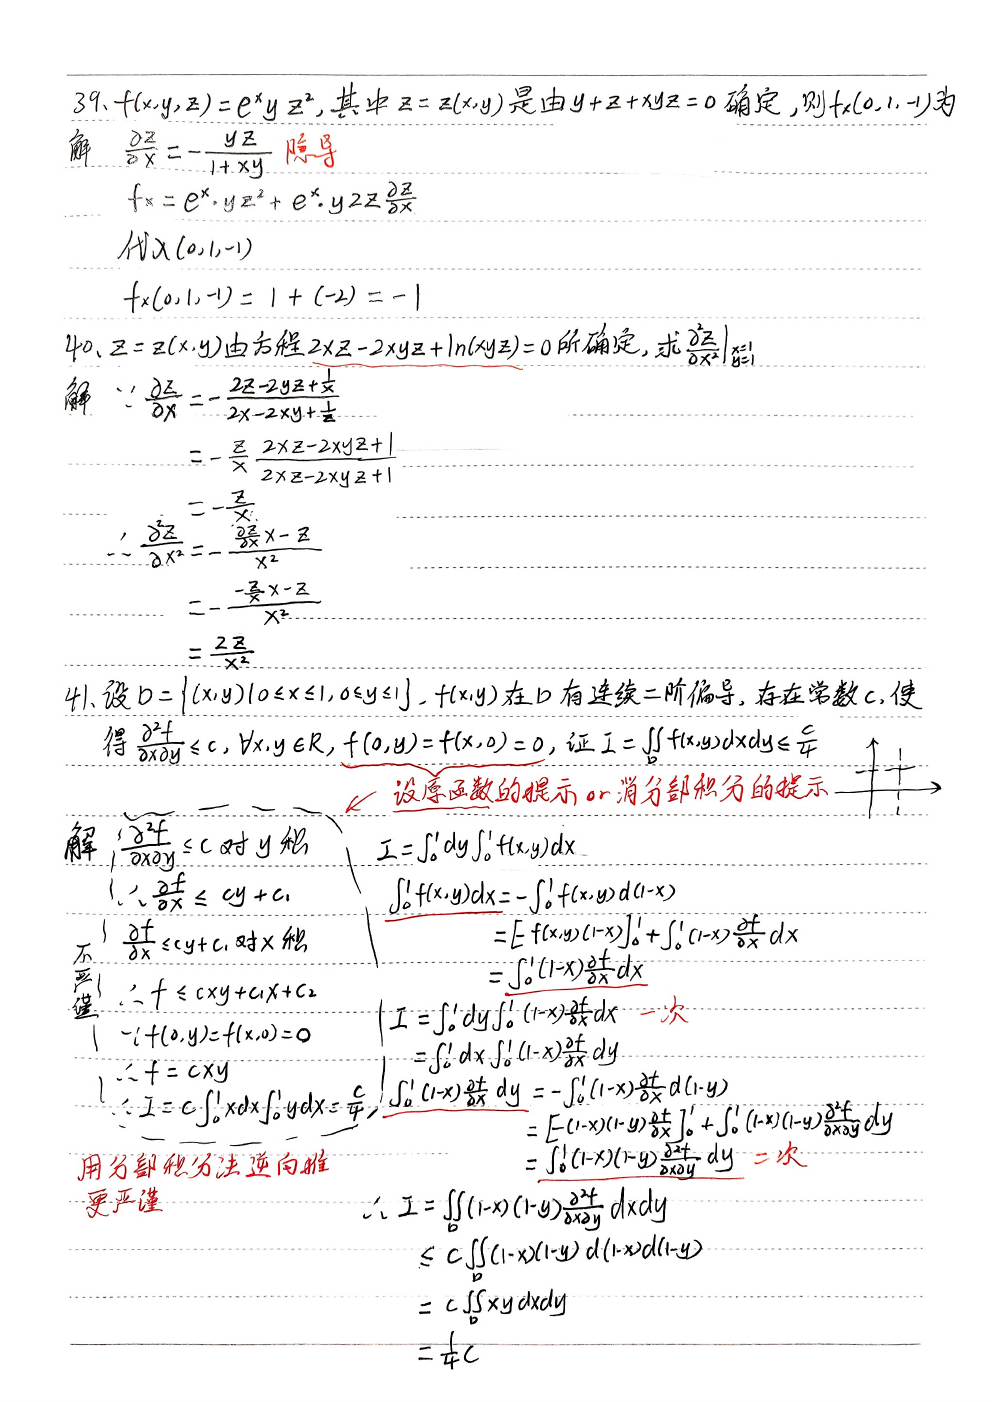 39、f(x,y,z)=eˣyz²,其中z=z(x,y)是由y+z+xyz=0确定,则fx(0,1,-1)为
解 ∂z/∂x=-yz/(1+xy) 隐导
fx=eˣ·yz²+eˣ·y2z∂z/∂x
代入(0,1,-1)
fx(0,1,-1)=1+(-2)=-1
40、z=z(x,y)由方程2xz-2xyz+ln(xyz)=0所确定,求∂²z/∂x²|x=1 y=1
解 ∵ ∂z/∂x=-(2z-2yz+1/x)/(2x-2xy+1/z)
=-z/x (2xz-2xyz+1)/(2xz-2xyz+1)
=-z/x
∴ ∂²z/∂x²=-(∂z/∂x x-z)/x²
=-(-z/x x-z)/x²
=2z/x²
41、设D={(x,y)|0≤x≤1,0≤y≤1}、f(x,y)在D有连续二阶偏导,存在常数c,使
得∂²f/∂x∂y≤c,∀x,y∈R,f(0,y)=f(x,0)=0,证I=∬_D f(x,y)dxdy≤c/4
设原函数的提示or消分部积分的提示
解 ∂²f/∂x∂y≤c对y积
∴ ∂f/∂x≤cy+c₁
∂f/∂x≤cy+c₁对x积
∴f≤cxy+c₁x+c₂
∵f(0,y)=f(x,0)=0
∴f=cxy
∴I=c∫₀¹xdx∫₀¹ydx=c/4
不严谨
用分部积分法逆向推
更严谨
I=∫₀¹dy∫₀¹f(x,y)dx
∫₀¹f(x,y)dx=-∫₀¹f(x,y)d(1-x)
=[-f(x,y)(1-x)]₀¹+∫₀¹(1-x)∂f/∂x dx
=∫₀¹(1-x)∂f/∂x dx
I=∫₀¹dy∫₀¹(1-x)∂f/∂x dx 一次
=∫₀¹dx∫₀¹(1-x)∂f/∂x dy
∫₀¹(1-x)∂f/∂x dy=-∫₀¹(1-x)∂f/∂x d(1-y)
=[-(1-x)(1-y)∂f/∂x]₀¹+∫₀¹(1-x)(1-y)∂²f/∂x∂y dy
=∫₀¹(1-x)(1-y)∂²f/∂x∂y dy 二次
∴ I=∬_D(1-x)(1-y)∂²f/∂x∂y dxdy
≤c∬_D(1-x)(1-y)d(1-x)d(1-y)
=c∬_D xydxdy
=1/4 c